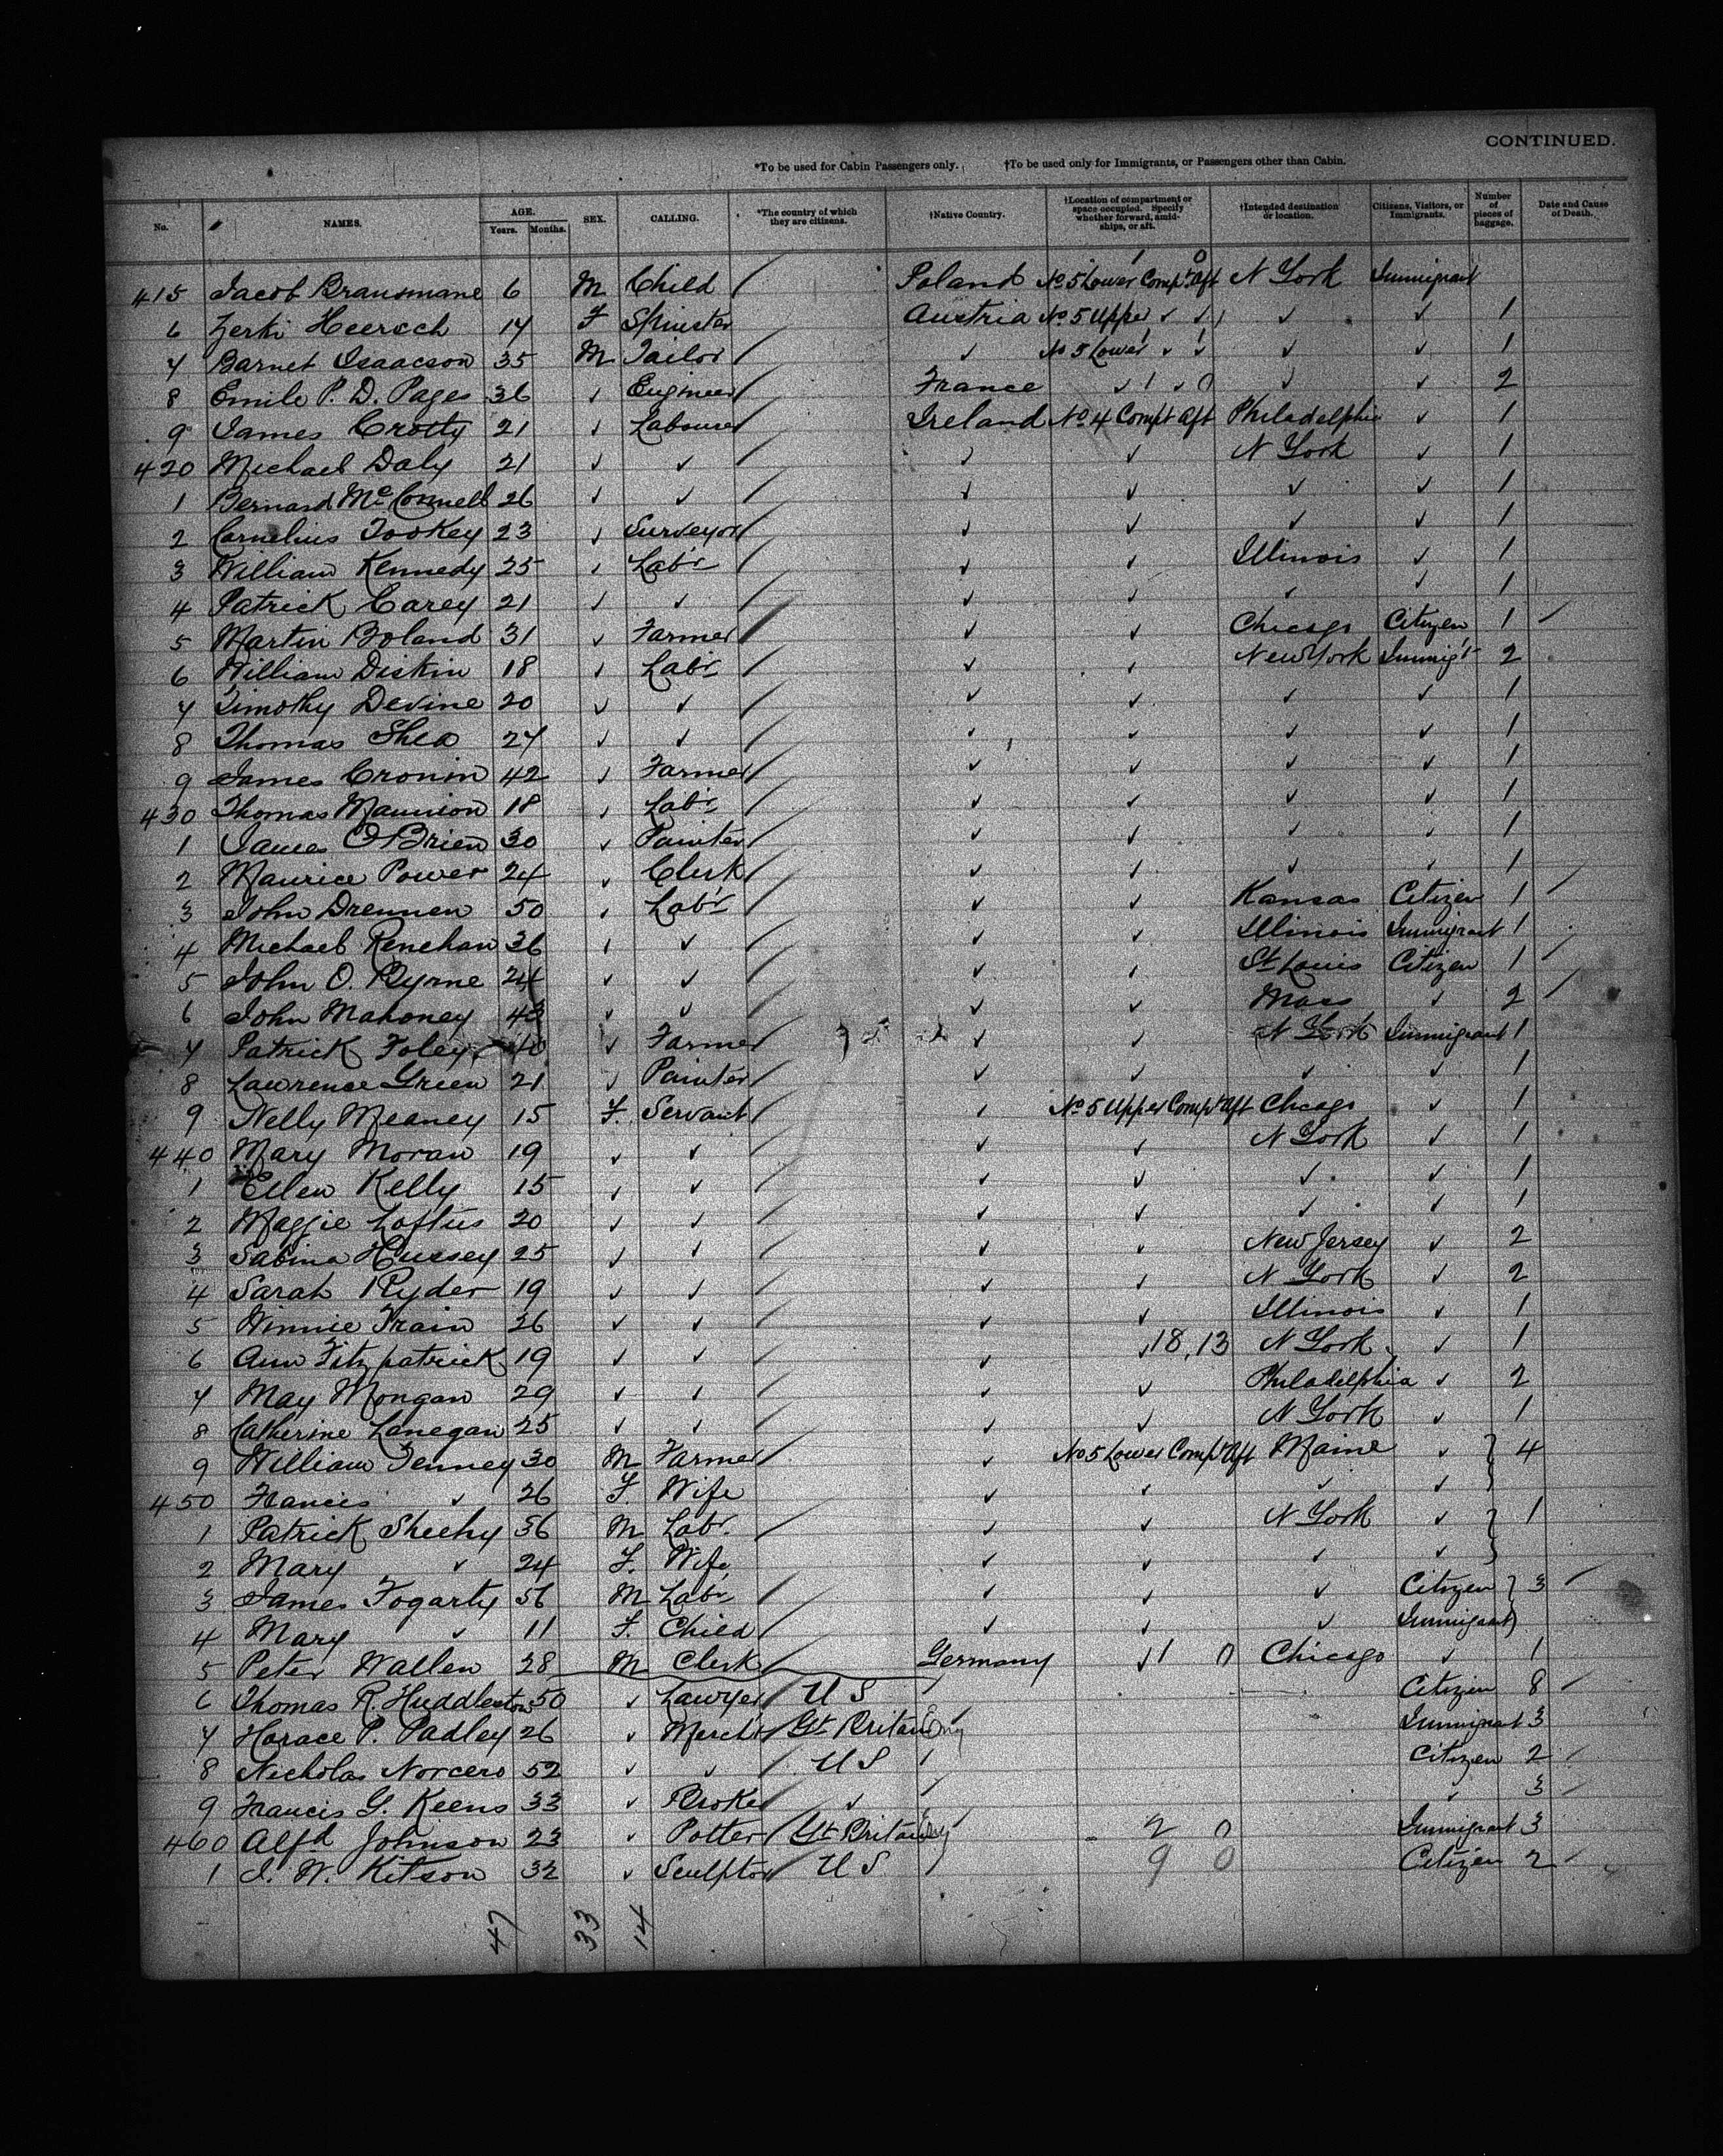 CONTINUED.
*To be used for Cabin Passengers only. †To be used only for Immigrants, or Passengers other than Cabin.
No. NAMES. AGE. Years. Months. SEX. CALLING. *The country of which they are citizens. †Native Country. †Location of compartment or space occupied. Specify whether forward, amidships, or aft. †Intended destination or location. Citizens, Visitors, or Immigrants. Number of pieces of baggage. Date and Cause of Death.
415 Jacob Brausmane 6 M Child / Poland No 5 Lower Compt Aft N York Immigrant
6 Zerki Heersch 14 F Spinster Austria No 5 Upper ✓ ✓ ✓ ✓ 1
7 Barnet Isaacson 35 M Tailor / ✓ No 5 Lower ✓ ✓ ✓ ✓ 1
8 Emile P. D. Pages 36 ✓ Engineer / France ✓ 1 ✓ 0 ✓ ✓ 2
9 James Crotty 21 ✓ Labourer / Ireland No 4 Compt Aft Philadelphia ✓ 1
420 Michael Daly 21 ✓ ✓ / ✓ ✓ N York ✓ 1
1 Bernard McConnell 26 ✓ ✓ / ✓ ✓ ✓ ✓ 1
2 Cornelius Tookey 23 ✓ Surveyor / ✓ ✓ ✓ ✓ 1
3 William Kennedy 25 ✓ Labr / ✓ ✓ Illinois ✓ 1
4 Patrick Carey 21 ✓ ✓ / ✓ ✓ ✓ ✓ 1
5 Martin Boland 31 ✓ Farmer / ✓ ✓ Chicago Citizen 1 /
6 William Diskin 18 ✓ Labr / ✓ ✓ New York Immigt 2
7 Timothy Devine 20 ✓ ✓ / ✓ ✓ ✓ ✓ 1
8 Thomas Shea 27 ✓ ✓ / ✓ ✓ ✓ ✓ 1
9 James Cronin 42 ✓ Farmer / ✓ ✓ ✓ ✓ 1
430 Thomas Mannion 18 ✓ Labr / ✓ ✓ ✓ ✓ 1
1 James O'Brien 30 ✓ Painter / ✓ ✓ ✓ ✓ 1
2 Maurice Power 24 ✓ Clerk / ✓ ✓ ✓ ✓ 1
3 John Drennen 50 ✓ Labr / ✓ ✓ Kansas Citizen 1 /
4 Michael Renehan 36 ✓ ✓ / ✓ ✓ Illinois Immigrant 1
5 John O. Byrne 24 ✓ ✓ / ✓ ✓ St Louis Citizen 1 /
6 John Mahoney 43 ✓ ✓ / ✓ ✓ Mass ✓ 2 /
7 Patrick Foley 40 ✓ Farmer / ✓ ✓ N York Immigrant 1
8 Lawrence Green 21 ✓ Painter / ✓ ✓ ✓ ✓ 1
9 Nelly Meaney 15 F. Servant / ✓ No 5 Upper Compt Aft Chicago ✓ 1
440 Mary Moran 19 ✓ ✓ / ✓ ✓ N York ✓ 1
1 Ellen Kelly 15 ✓ ✓ / ✓ ✓ ✓ ✓ 1
2 Maggie Loftus 20 ✓ ✓ / ✓ ✓ ✓ ✓ 1
3 Sabina Hussey 25 ✓ ✓ / ✓ ✓ New Jersey ✓ 2
4 Sarah Ryder 19 ✓ ✓ / ✓ ✓ N York ✓ 2
5 Winnie Train 26 ✓ ✓ / ✓ ✓ Illinois ✓ 1
6 Ann Fitzpatrick 19 ✓ ✓ / ✓ ✓ 18,13 N York ✓ 1
7 May Mongan 29 ✓ ✓ / ✓ ✓ Philadelphia ✓ 2
8 Catherine Lanegan 25 ✓ ✓ / ✓ ✓ N York ✓ 1
9 William Tenney 30 M Farmer / ✓ No 5 Lower Compt Aft Maine ✓ } 4
450 Francis ✓ 26 F. Wife ✓ ✓ ✓ ✓
1 Patrick Sheehy 56 M Labr. / ✓ ✓ N York ✓ } 1
2 Mary ✓ 24 F. Wife ✓ ✓ ✓ ✓
3 James Fogarty 56 M Labr / ✓ ✓ ✓ Citizen } 3 /
4 Mary ✓ 11 F. Child / ✓ ✓ ✓ Immigrant
5 Peter Wallen 28 M Clerk / Germany ✓ 1 0 Chicago ✓ 1
6 Thomas R. Huddleston 50 ✓ Lawyer / U S / Citizen 8 /
7 Horace P. Padley 26 ✓ Mercht / Gt Britain Eng Immigrant 3
8 Nicholas Norcero 52 ✓ ✓ / U S / Citizen 2 /
9 Francis G. Keens 33 ✓ Broker / ✓ / ✓ 3 /
460 Alfd Johnson 23 ✓ Potter / Gt Britain Eng 2 0 Immigrant 3
1 J. W. Kitson 32 ✓ Sculptor / U S / 9 0 Citizen 2 /
47 33 14